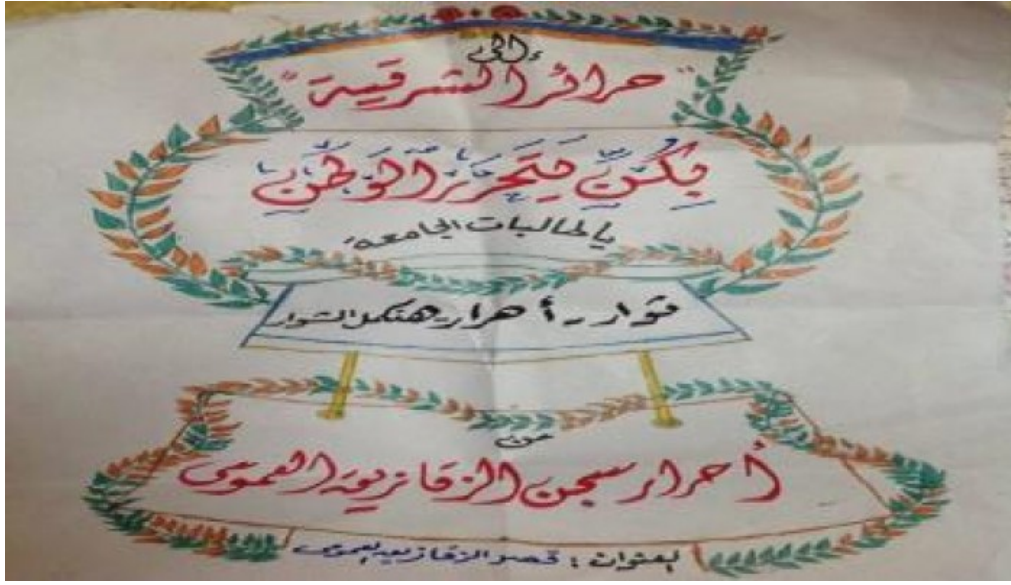 إلى
"حرائر الشرقية"
بِكُنَّ يَتَحَرَّرُ الوَطَن
يا طالبات الجامعة
ثوار - أحرار - هنكمل المشوار
من
أحرار سجن الزقازيق العمومى
العنوان : قصر الزقازيق العمومى